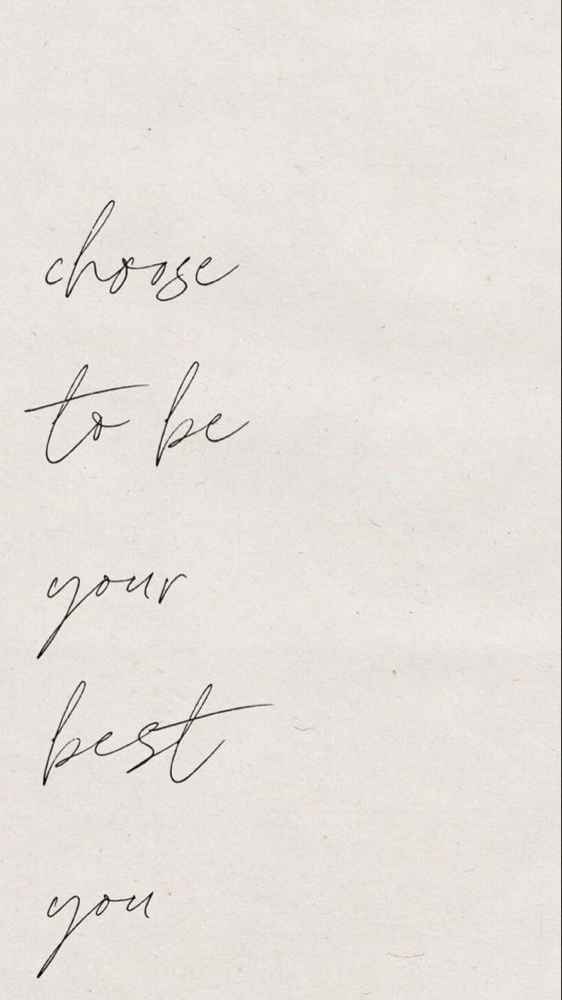 choose
to be
your
best
you